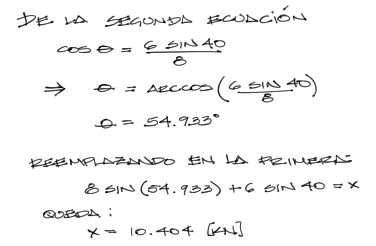 DE LA SEGUNDA ECUACIÓN
COS θ = 6 SIN 40 / 8
⇒ θ = ARCCOS (6 SIN 40 / 8)
θ = 54.933°
REEMPLAZANDO EN LA PRIMERA:
8 SIN (54.933) + 6 SIN 40 = X
QUEDA:
X = 10.404 [KN]